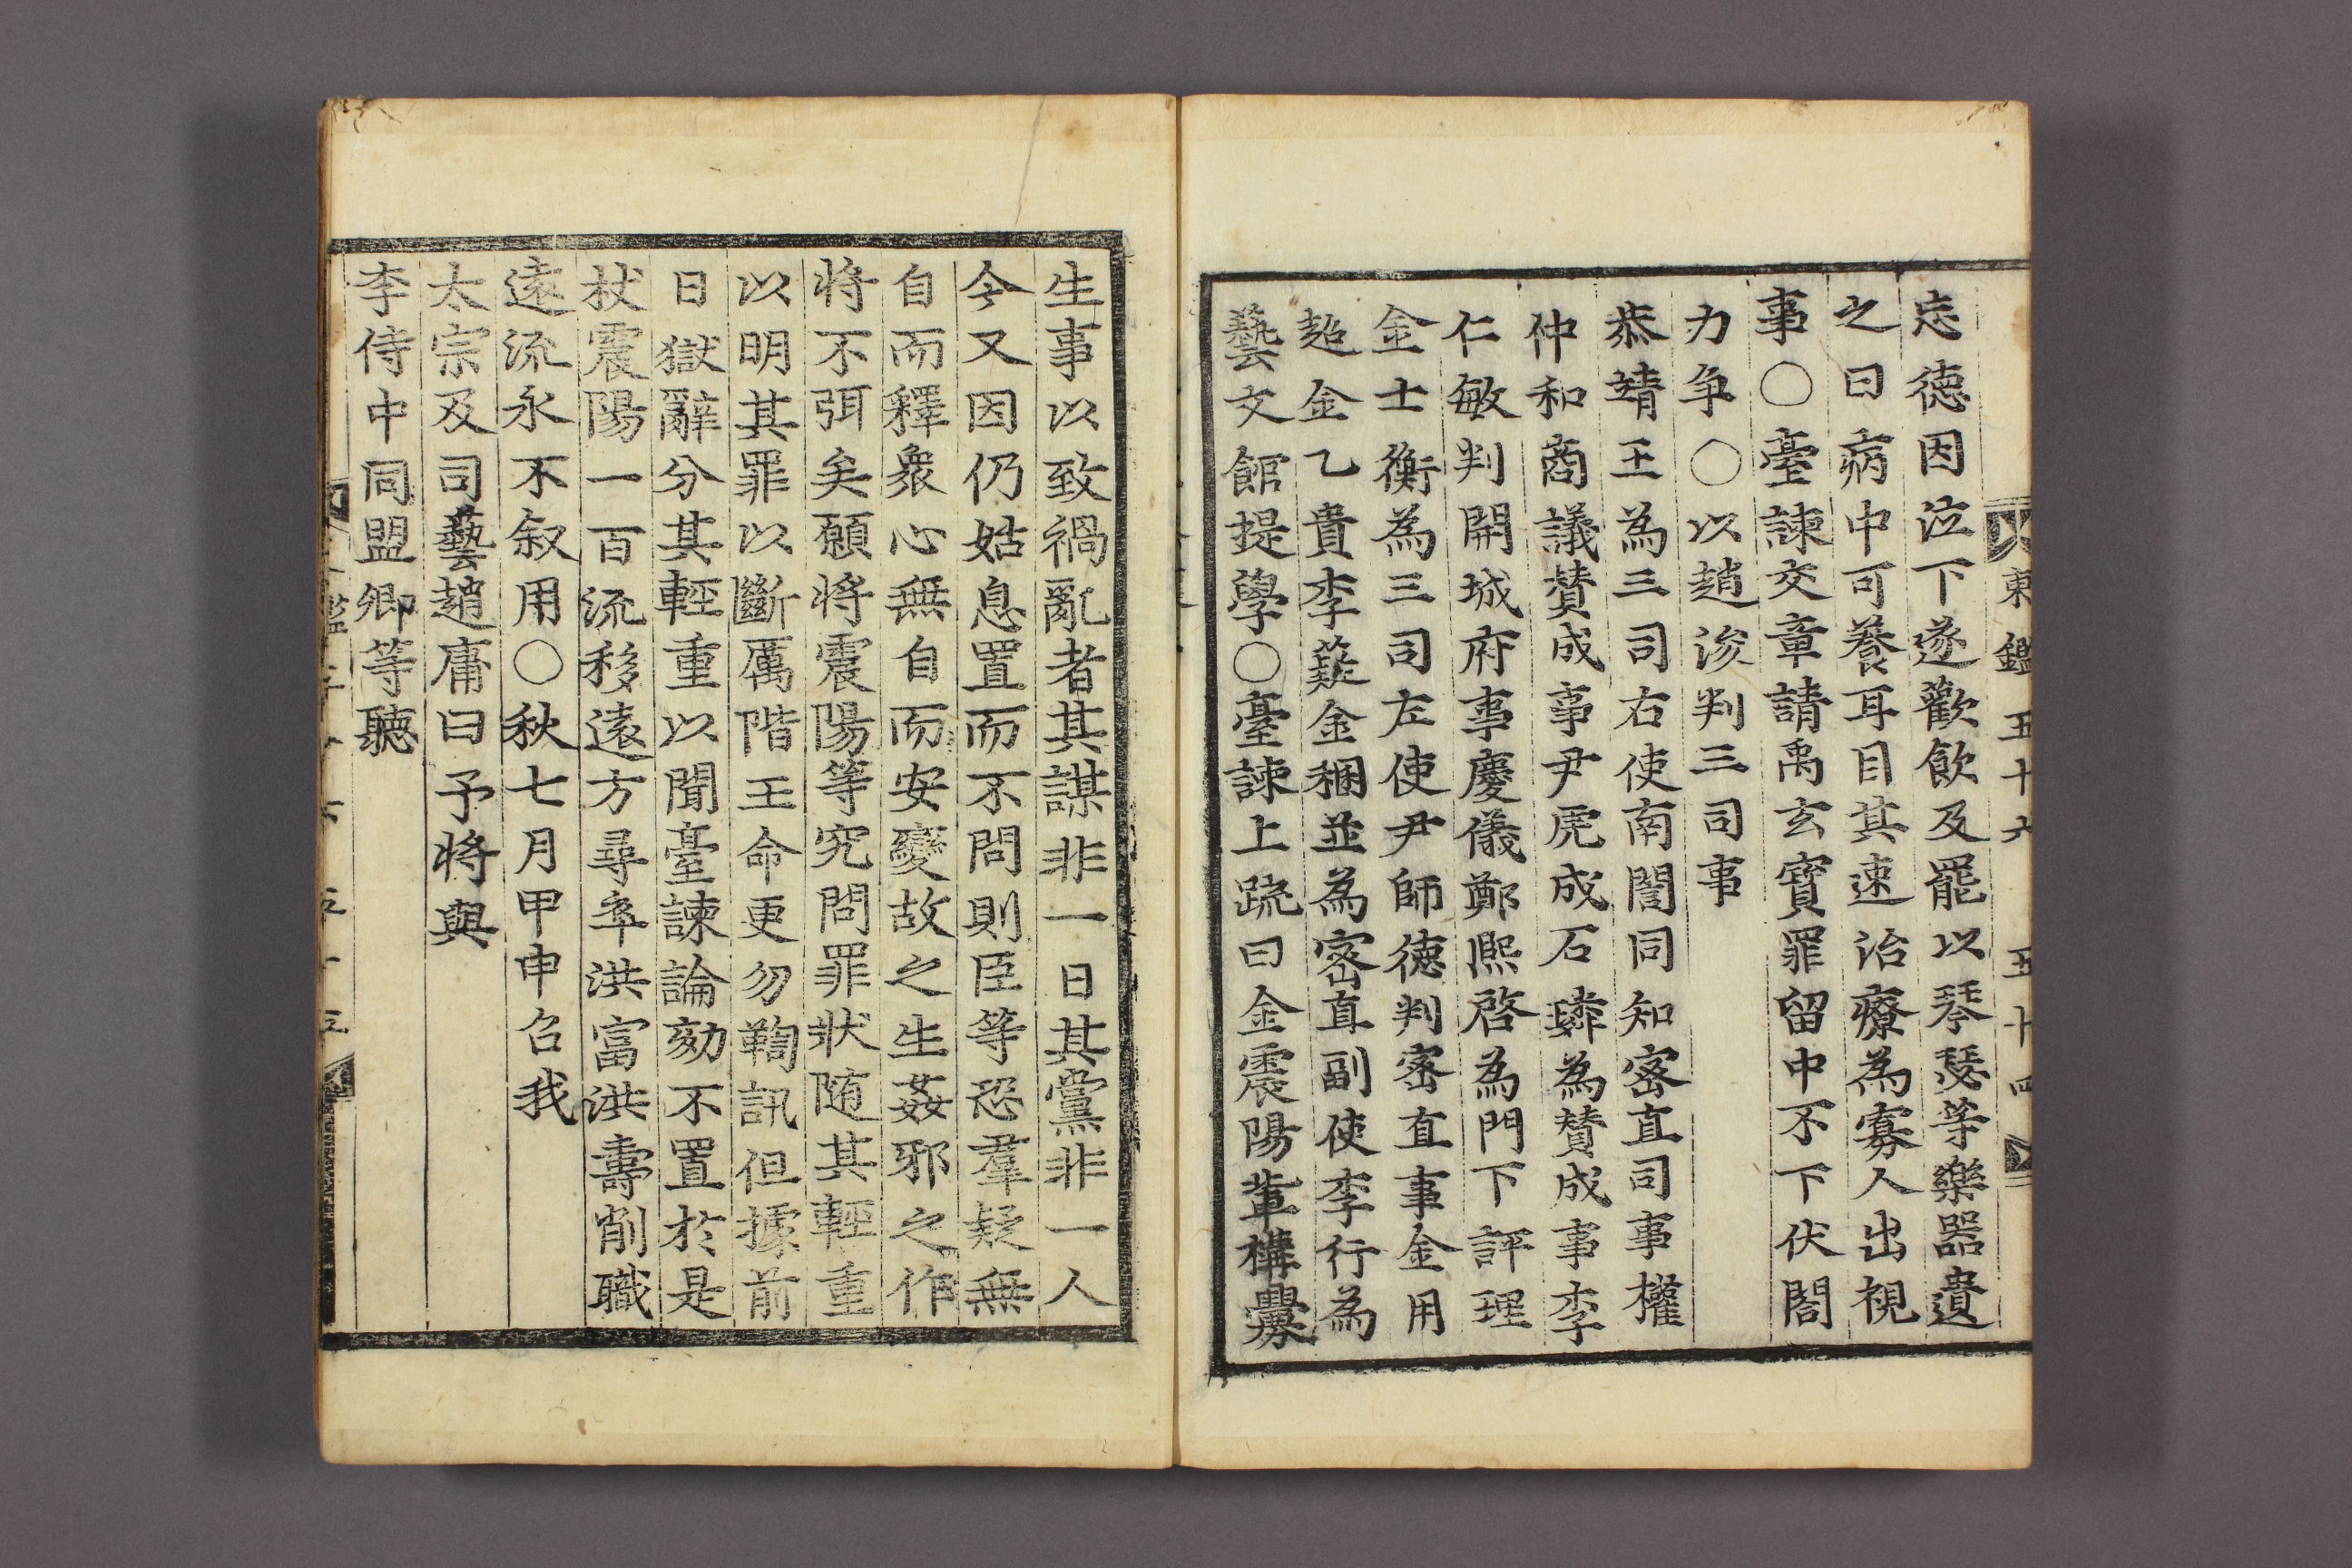 東鑑五十六 五十四
忘德因泣下遂歡飮及罷以琴瑟等樂器遺
之曰病中可養耳目其速治療為寡人出視
事○臺諫交章請禹玄寶罪留中不下伏閤
力争○以趙浚判三司事
恭靖王為三司右使南誾同知密直司事權
仲和商議賛成事尹虎成石璘為賛成事李
仁敏判開城府事慶儀鄭熙啓為門下評理
金士衡為三司左使尹師德判密直事金用
超金乙貴李薿金稛並為密直副使李行為
藝文館提學○臺諫上䟽曰金震陽軰構釁
生事以致禍亂者其謀非一日其黨非一人
今又因仍姑息置而不問則臣等恐羣疑無
自而釋衆心無自而安變故之生姦邪之作
将不弭矣願将震陽等究問罪狀随其輕重
以明其罪以斷厲階王命更勿鞫訊但據前
日獄辭分其輕重以聞臺諫論劾不置於是
杖震陽一百流移遠方尋卒洪富洪壽削職
遠流永不叙用○秋七月甲申召我
太宗及司藝趙庸曰予将與
李侍中同盟卿等聽